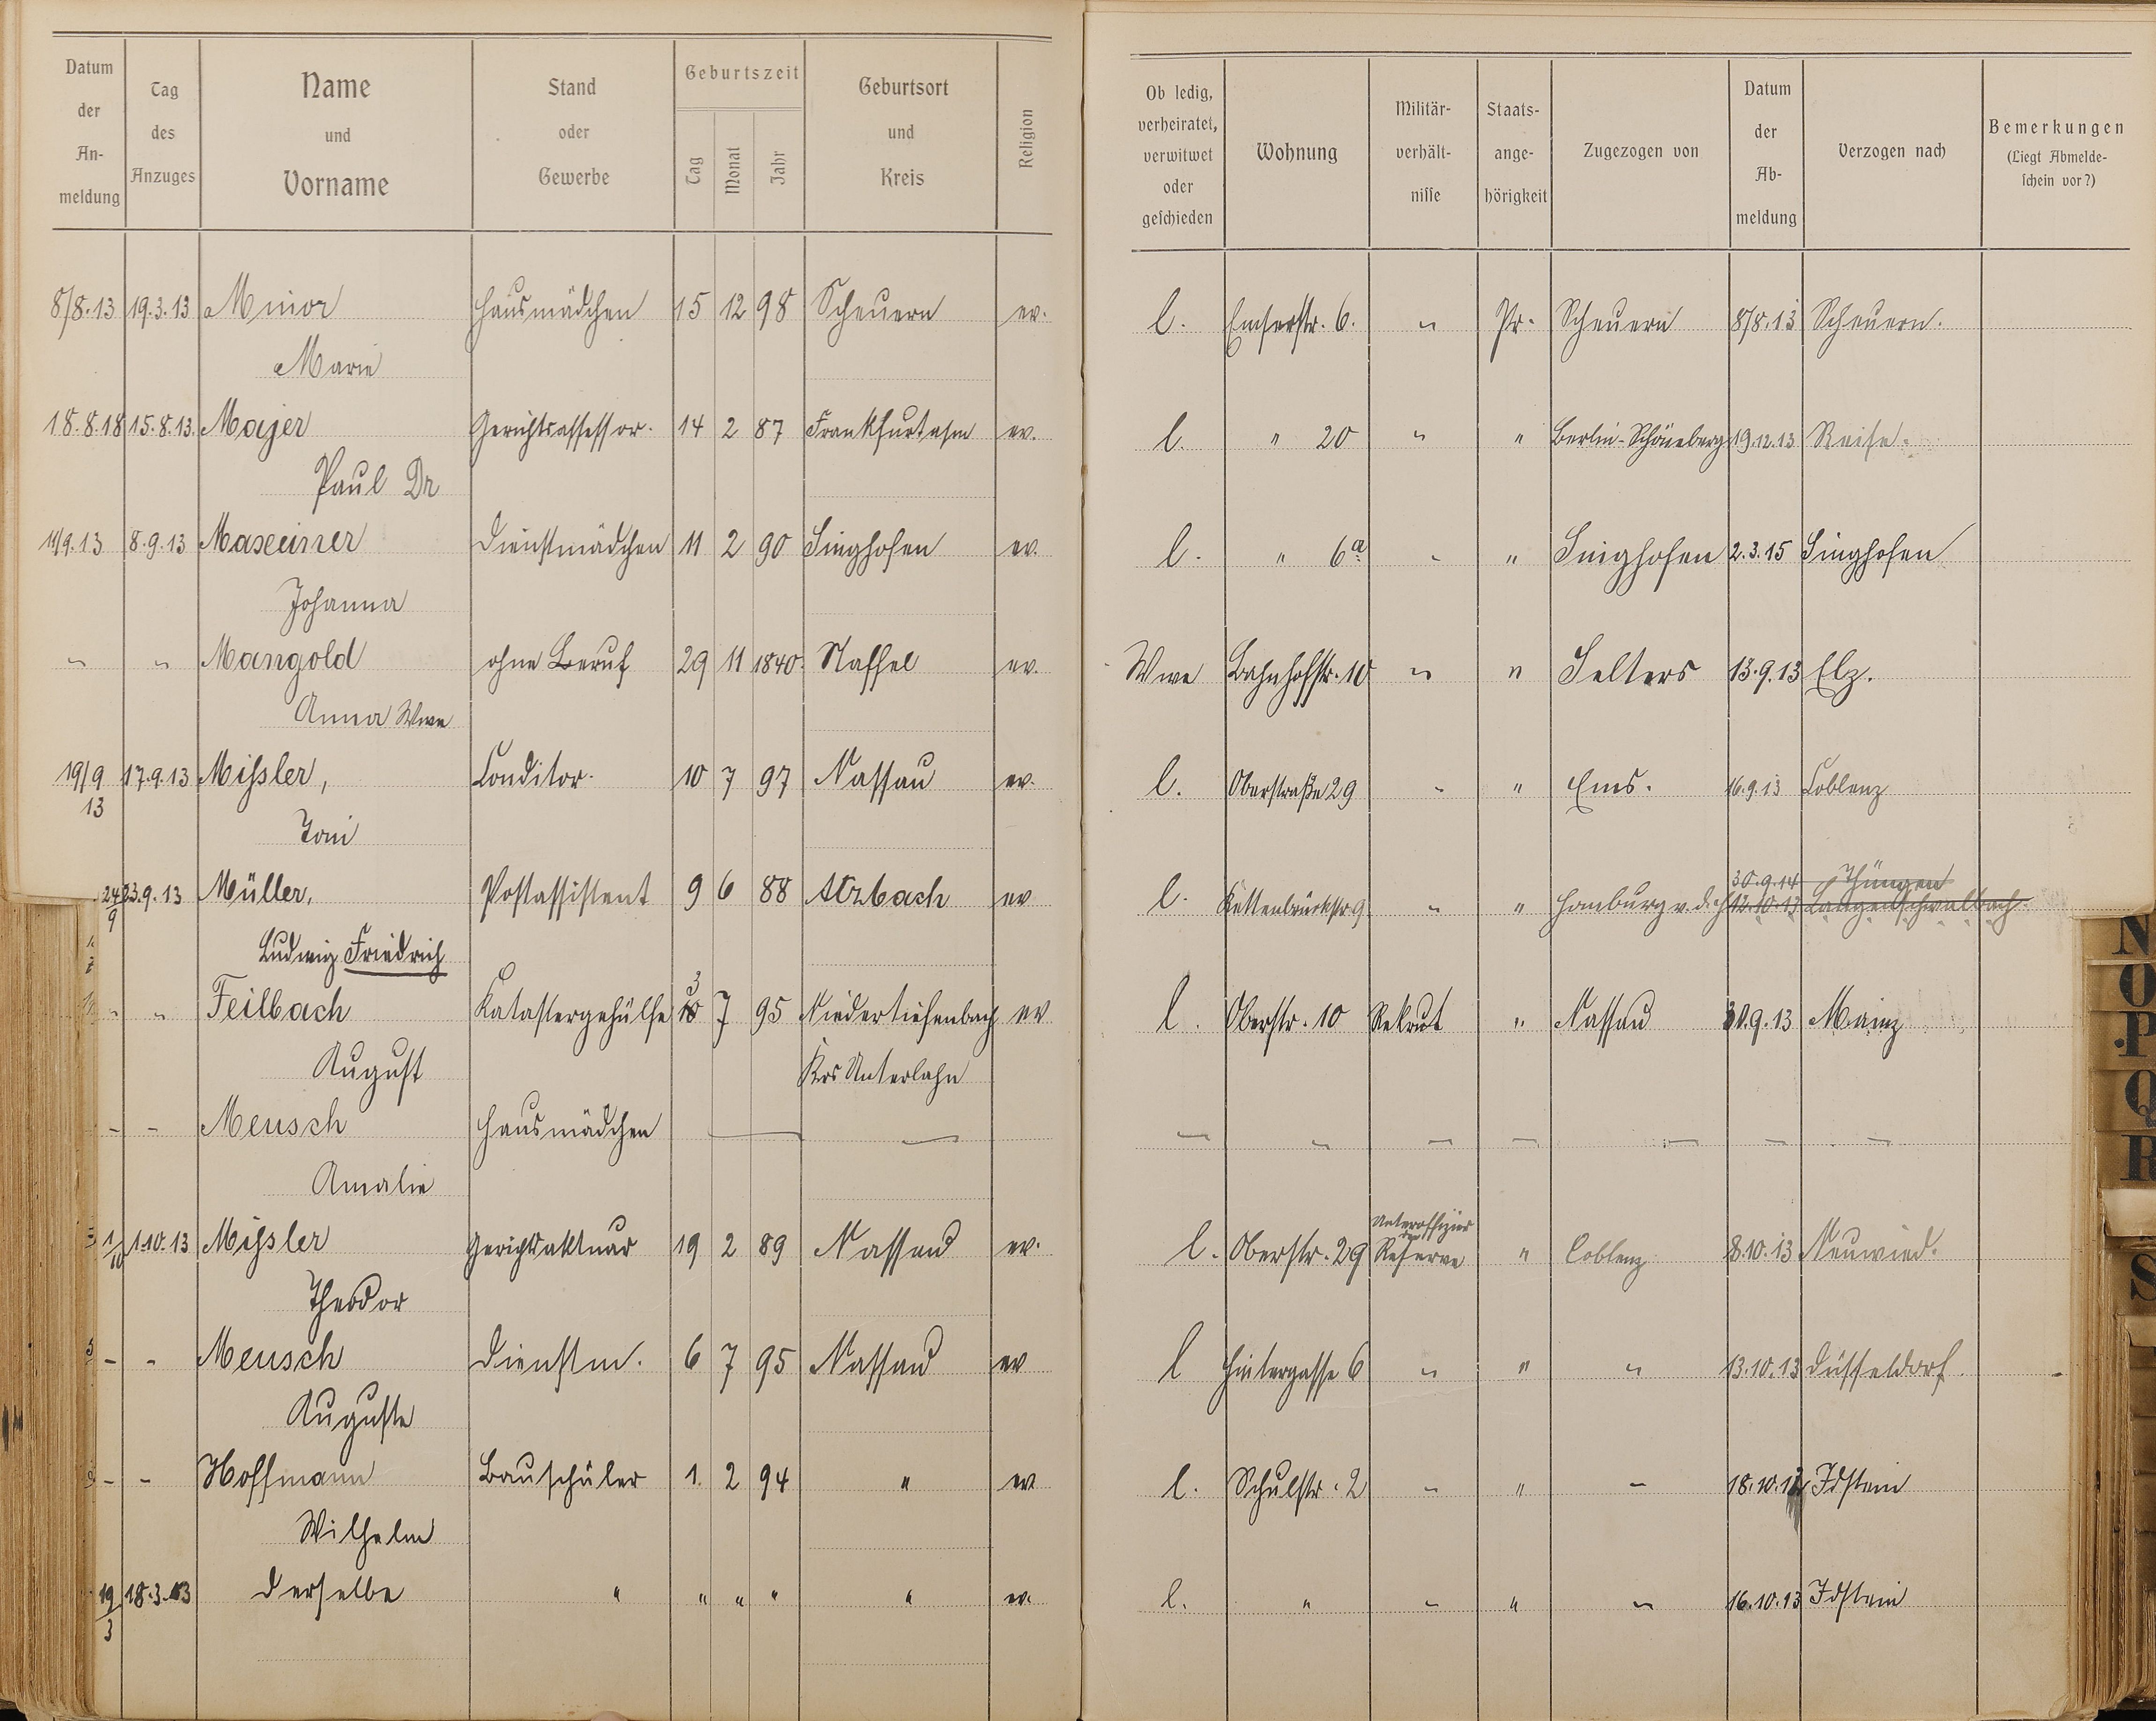 Datum der Anmeldung | Tag des Anzuges | Name und Vorname | Stand oder Gewerbe | Geburtszeit Tag Monat Jahr | Geburtsort und Kreis | Religion | Ob ledig, verheiratet, verwitwet oder geschieden | Wohnung | Militärverhältnisse | Staatsangehörigkeit | Zugezogen von | Datum der Abmeldung | Verzogen nach | Bemerkungen (Liegt Abmeldeschein vor?)
8/8.13 19.3.13 Minor Hausmädchen 15 12 98 Scheuern ev. l. Emserstr. 6. " Pr. Scheuern 8/8.13 Scheuern.
Marie
18.8.18 15.8.13. Majer Gerichtsassessor. 14 2 87 Frankfurt a/m ev. l. " 20 " " Berlin-Schöneberg 19.12.13 Reise.
Paul Dr
11/9.13 8.9.13 Maxeiner Dienstmädchen 11 2 90 Singhofen ev. l. " 6a - " Singhofen 2.3.15 Singhofen
Johanna
" " Mangold ohne Beruf 29 11 1840. Staffel ev. Wwe Bahnhofstr. 10 " " Selters 13.9.13 Elz.
Anna Wwe
19/9 13 17.9.13 Mißler, Conditor. 10 7 97 Nassau ev. l. Oberstraße 29 - " Ems. 16.9.13 Coblenz
Toni
30.9.14 Thüngen
24/9 23.9.13 Müller, Postassistent 9 6 88 Arzbach ev l. Kettenbrückstr. 9 " " Homburg v.d.H 12.10.13 Langenschwalbach.
Ludwig Friedrich
" " Feilbach Katastergehülfe 3 7 95 Niedertiefenbach ev l. Oberstr. 10 Rekrut " Nassau 30.9.13 Mainz
August Krs Unterlahn
- - Meusch Hausmädchen — — — — — — — — —
Amalie
1/10 1.10.13 Mißler Gerichtsaktuar 19 2 89 Nassau ev. l. Oberstr. 29 Unteroffizier der Reserve " Coblenz 8.10.13 Neuwied.
Theodor
- - Meusch Dienstm. 6 7 95 Nassau ev l Hintergasse 6 " " " 13.10.13 Düsseldorf.
Auguste
- - Hoffmann Bauschüler 1. 2 94 " ev. l. Schulstr. 2 " " - 18.10.12 Idstein
Wilhelm
19/3 18.3.13 Derselbe " " " " " ev. l. " " " " 16.10.13 Idstein
N
O
P
Q
R
S